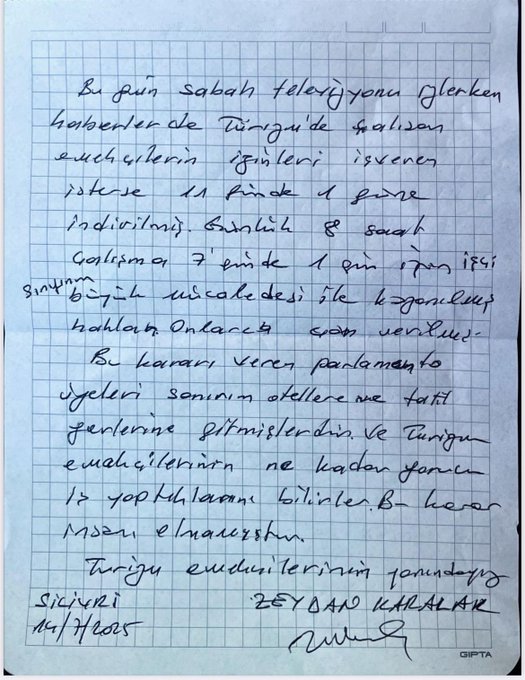 Bu gün sabah televizyonu izlerken
haberlerde Turizm'de çalışan
emekçilerin izinleri işveren
isterse 11 günde 1 güne
indirilmiş. Günlük 8 saat
çalışma 7 günde 1 gün izin işçi
sınıfının büyük mücadelesi ile kazanılmış
hakları, Onlarca can verilmiş.
Bu kararı veren parlamento
üyeleri sanırım otellere ve tatil
yerlerine gitmişlerdir. Ve Turizm
emekçilerinin ne kadar yorucu
iş yaptıklarını bilirler. Bu karar
insani olmamıştır.
Turizm emekçilerinin yanındayız
SİLİVRİ ZEYDAN KARALAR
14/7/2025
GIPTA